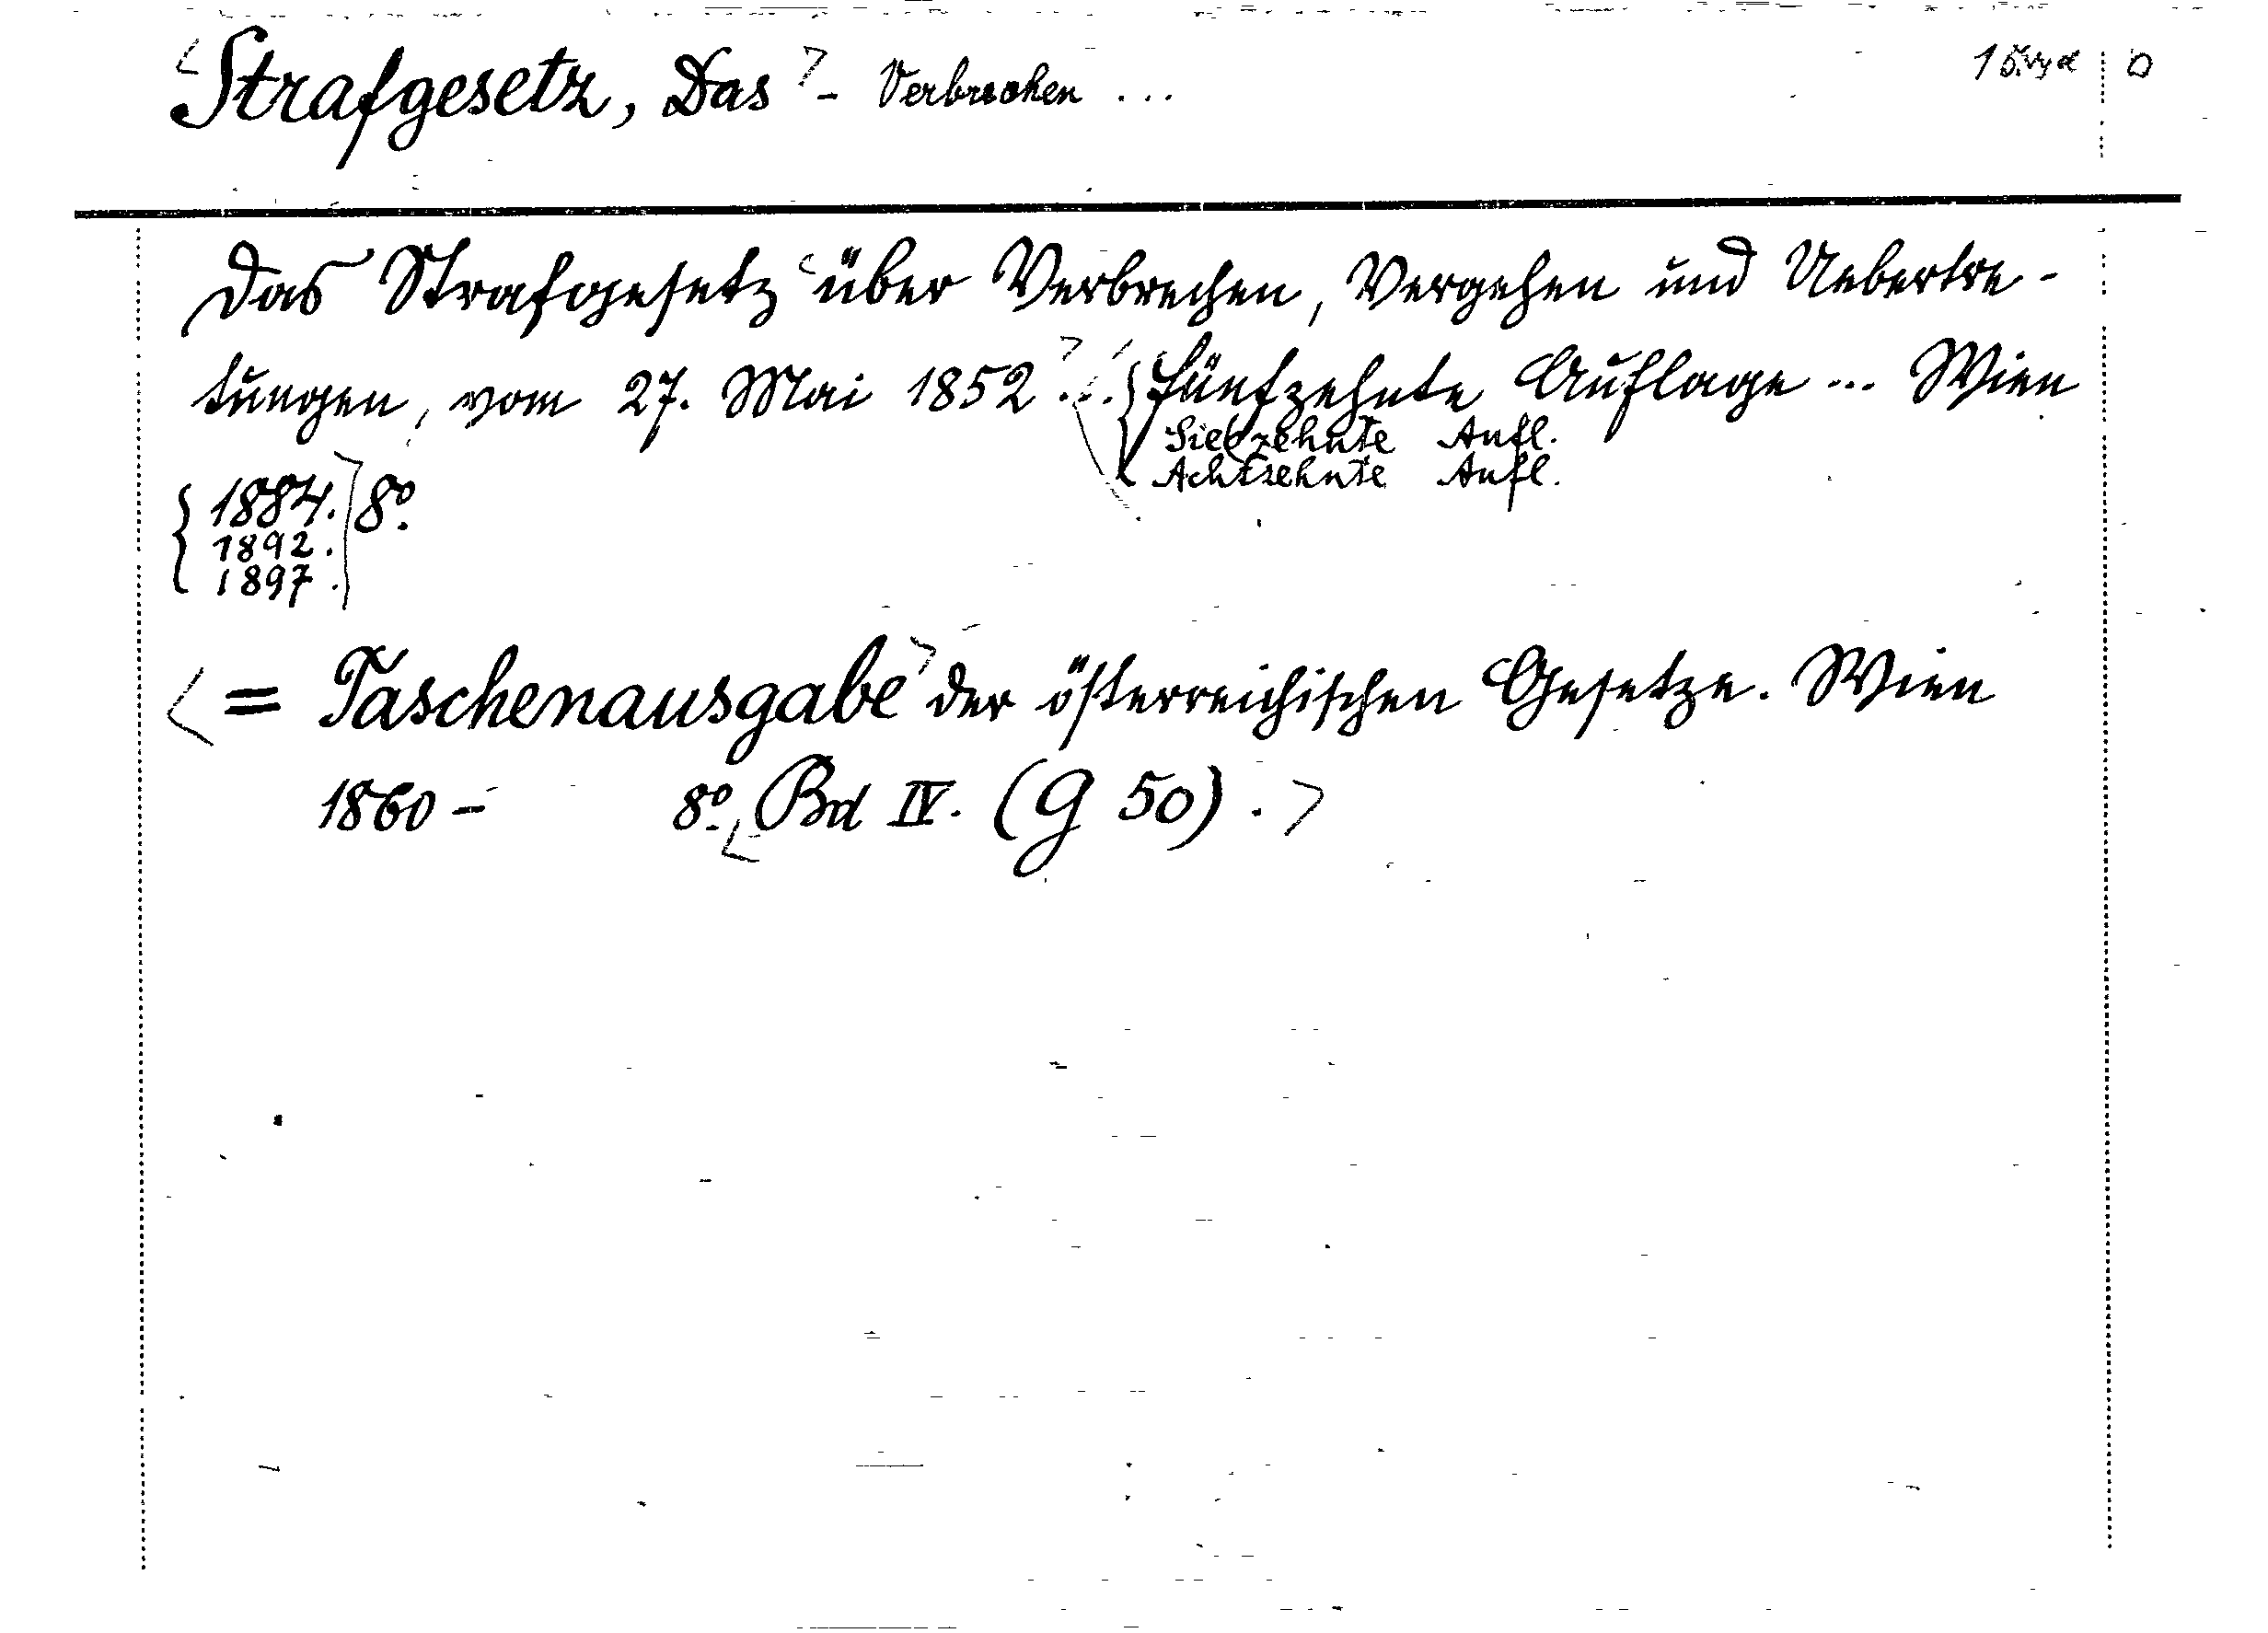 Strafgesetz, Das - Verbrechen ...
Das Strafgesetz über Verbrechen, Vergehen und Uebertre-
tungen, vom 27. Mai 1852 ... fünfzehnte Auflage ... Wien
Siebzehnte Aufl.
Achtzehnte Aufl.
1884. 8º.
1892.
1897.
= Taschenausgabe der österreichischen Gesetze. Wien
1860 - 8º. Bd IV. (G 50).